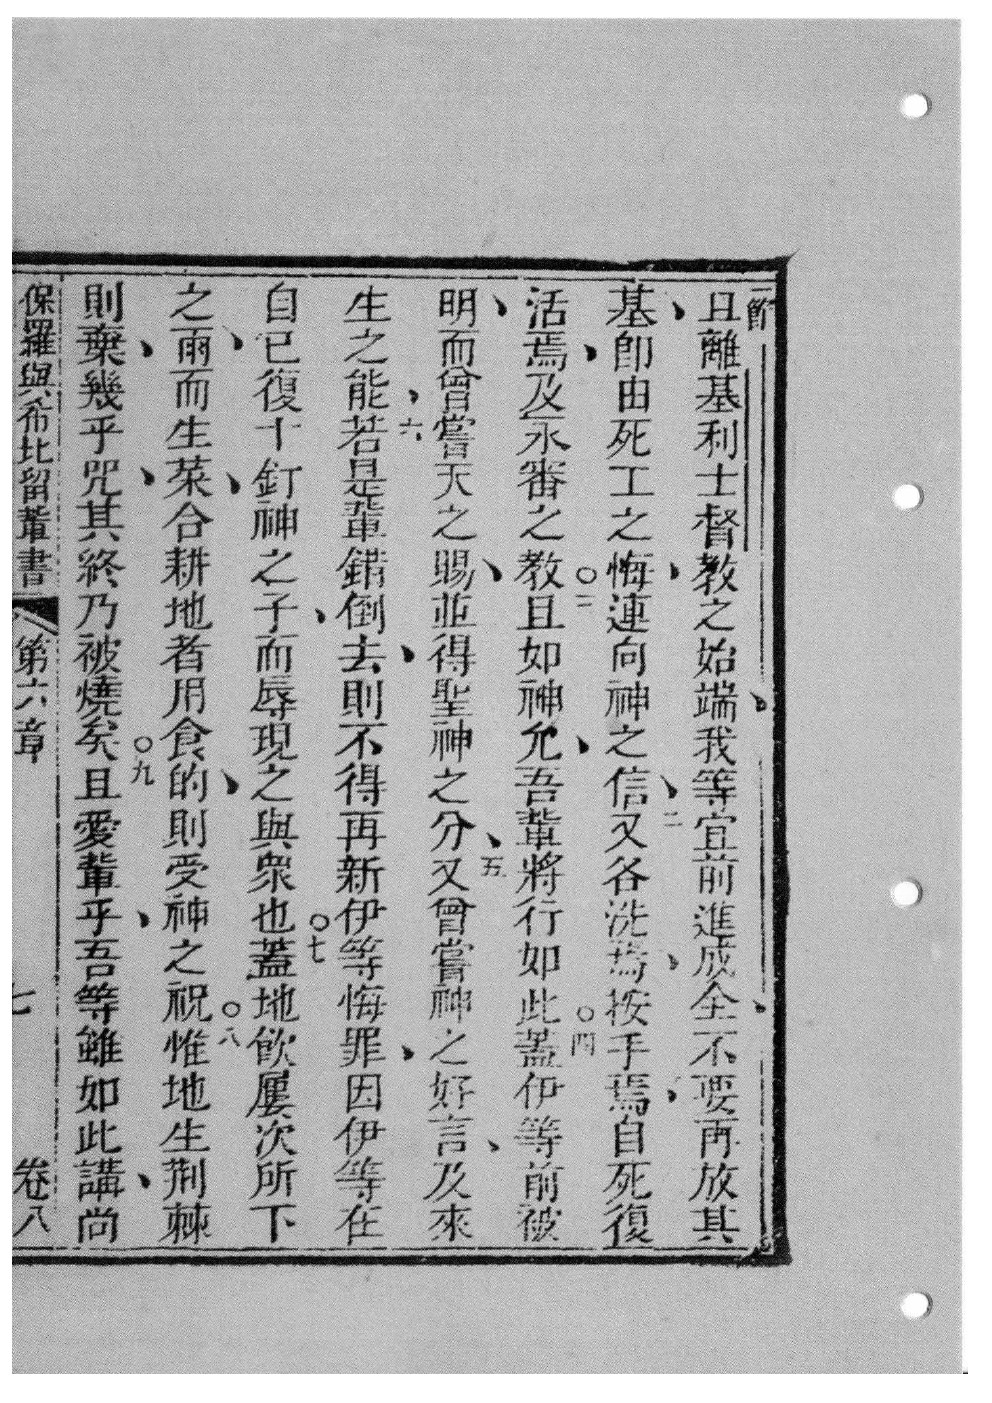 一節
且離基利士督教之始端、我等宜前進成全、不要再放其
基、卽由死工之悔、連向神之信、二又各洗焉、按手焉、自死復
活焉、及永審之教○三且如神允、吾輩將行如此○四蓋伊等前被
明、而曾嘗天之賜、並得聖神之分、五又曾嘗神之好言、及來
生之能、六若是輩錯倒去、則不得再新伊等悔罪、因伊等在
自己復十釘神之子、而辱現之與衆也○七蓋地飲屢次所下
之雨、而生菜、合耕地者用食的、則受神之祝○八惟地生荆棘
則棄、幾乎咒、其終乃被燒矣○九且愛輩乎、吾等雖如此講、尚
保羅與希比留輩書 第六章 七 卷八